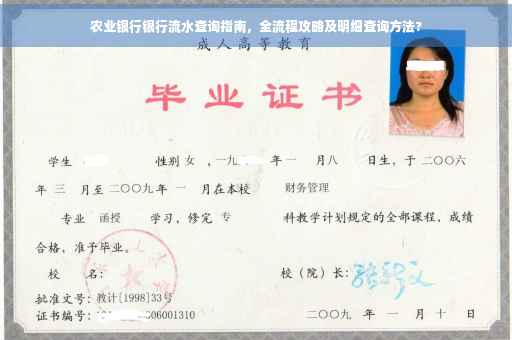 农业银行银行流水查询指南，全流程攻略及明细查询方法？
成人高等教育
毕业证书
学生 性别 女 ，一九 年 一 月八 日生，于 二〇〇六
年 三 月至 二〇〇九 年 一 月在本校 财务管理
专业 函授 学习，修完 专 科教学计划规定的全部课程，成绩
合格，准予毕业。
校 名： 校（院）长：
批准文号：教计[1998]33号
证书编号： 06001310 二〇〇九 年 一 月 十 日